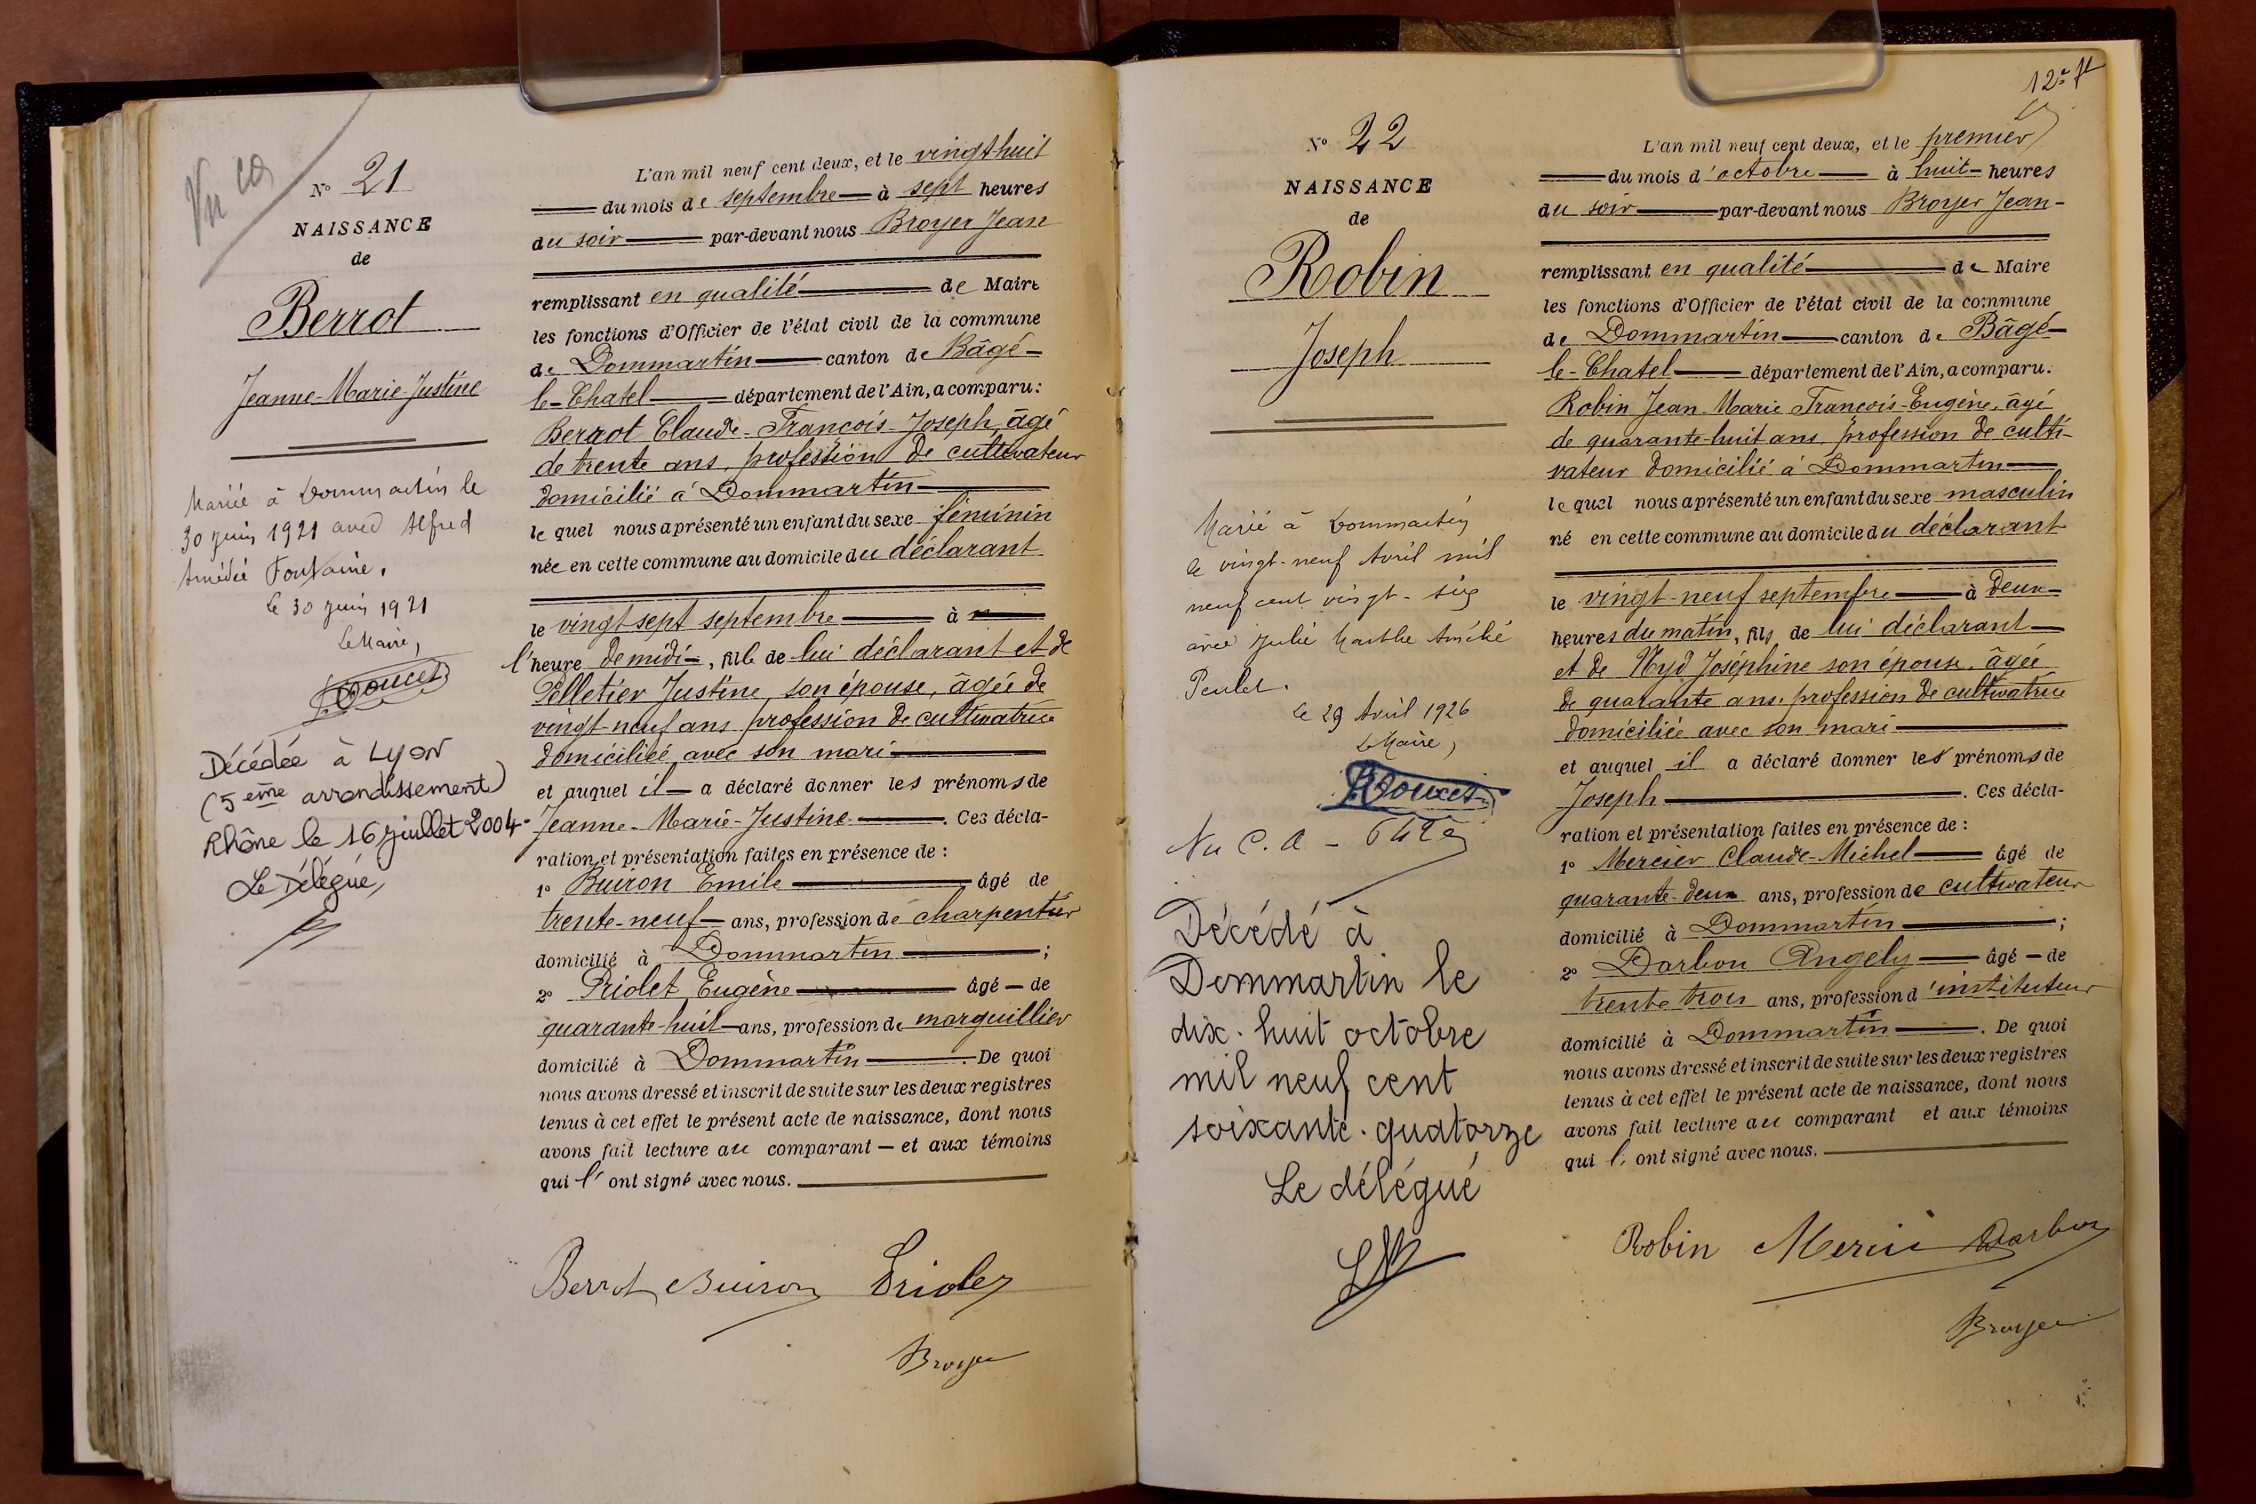 Vu ca
N° 21
NAISSANCE
de
Berrot
Jeanne-Marie-Justine
Mariée à Dommartin le
30 juin 1921 avec Alfred
Amédée Fontaine.
le 30 juin 1921
Le Maire,
Doucet
Décédée à Lyon
(5ème arrondissement)
Rhône le 16 juillet 2004.
Le Délégué,
L'an mil neuf cent deux, et le vingt huit
du mois de septembre à sept heures
du soir par-devant nous Broyer Jean
remplissant en qualité de Maire
les fonctions d'Officier de l'état civil de la commune
de Dommartin canton de Bâgé-
le-Chatel département de l'Ain, a comparu:
Berrot Claude-François-Joseph, âgé
de trente ans, profession de cultivateur
domicilié à Dommartin
lequel nous a présenté un enfant du sexe féminin
née en cette commune au domicile du déclarant
le vingt sept septembre à
l'heure de midi, fille de lui déclarant et de
Pelletier Justine, son épouse, âgée de
vingt-neuf ans, profession de cultivatrice
domiciliée avec son mari
et auquel il a déclaré donner les prénoms de
Jeanne-Marie-Justine. Ces décla-
ration et présentation faites en présence de :
1° Buiron Emile âgé de
trente-neuf ans, profession de charpentier
domicilié à Dommartin ;
2° Priolet Eugène âgé de
quarante-huit ans, profession de marguillier
domicilié à Dommartin. De quoi
nous avons dressé et inscrit de suite sur les deux registres
tenus à cet effet le présent acte de naissance, dont nous
avons fait lecture au comparant et aux témoins
qui l'ont signé avec nous.
Berrot Buiron Priolet
Broyer
N° 22
NAISSANCE
de
Robin
Joseph
Marié à Dommartin
le vingt-neuf Avril mil
neuf cent vingt-six
avec Julie Marthe Amélie
Poulet.
le 29 Avril 1926
Le Maire,
Doucet
Vu C. A
Décédé à
Dommartin le
dix-huit octobre
mil neuf cent
soixante-quatorze
Le délégué
L'an mil neuf cent deux, et le premier
du mois d'octobre à huit heures
du soir par-devant nous Broyer Jean
remplissant en qualité de Maire
les fonctions d'Officier de l'état civil de la commune
de Dommartin canton de Bâgé-
le-Chatel département de l'Ain, a comparu.
Robin Jean-Marie François-Eugène, âgé
de quarante-huit ans, profession de culti-
vateur domicilié à Dommartin
lequel nous a présenté un enfant du sexe masculin
né en cette commune au domicile du déclarant
le vingt-neuf septembre à deux
heures du matin, fils de lui déclarant
et de Nyd Joséphine son épouse, âgée
de quarante ans, profession de cultivatrice
domiciliée avec son mari
et auquel il a déclaré donner les prénoms de
Joseph. Ces décla-
ration et présentation faites en présence de :
1° Mercier Claude-Michel âgé de
quarante-deux ans, profession de cultivateur
domicilié à Dommartin ;
2° Darbon Angely âgé de
trente trois ans, profession d'instituteur
domicilié à Dommartin. De quoi
nous avons dressé et inscrit de suite sur les deux registres
tenus à cet effet le présent acte de naissance, dont nous
avons fait lecture au comparant et aux témoins
qui l'ont signé avec nous.
Robin Mercier Darbon
Broyer